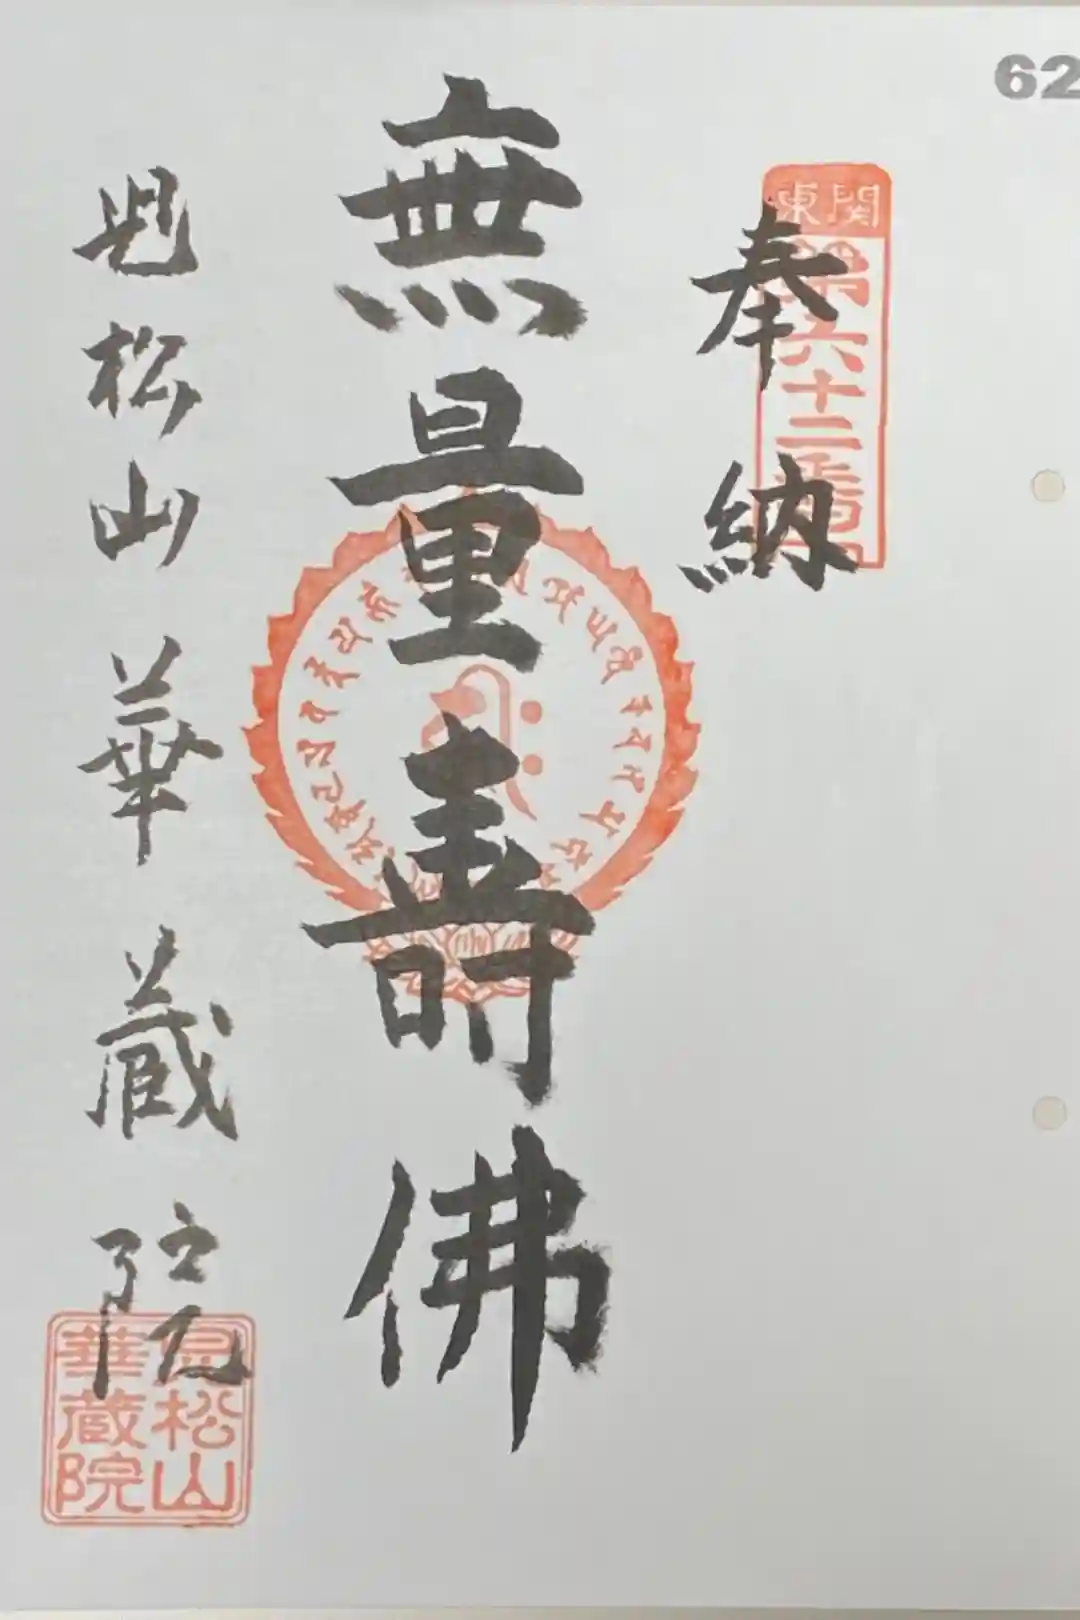 62
関東
第六十二番
奉納
無量壽佛
児松山華蔵院
児松山
華蔵院